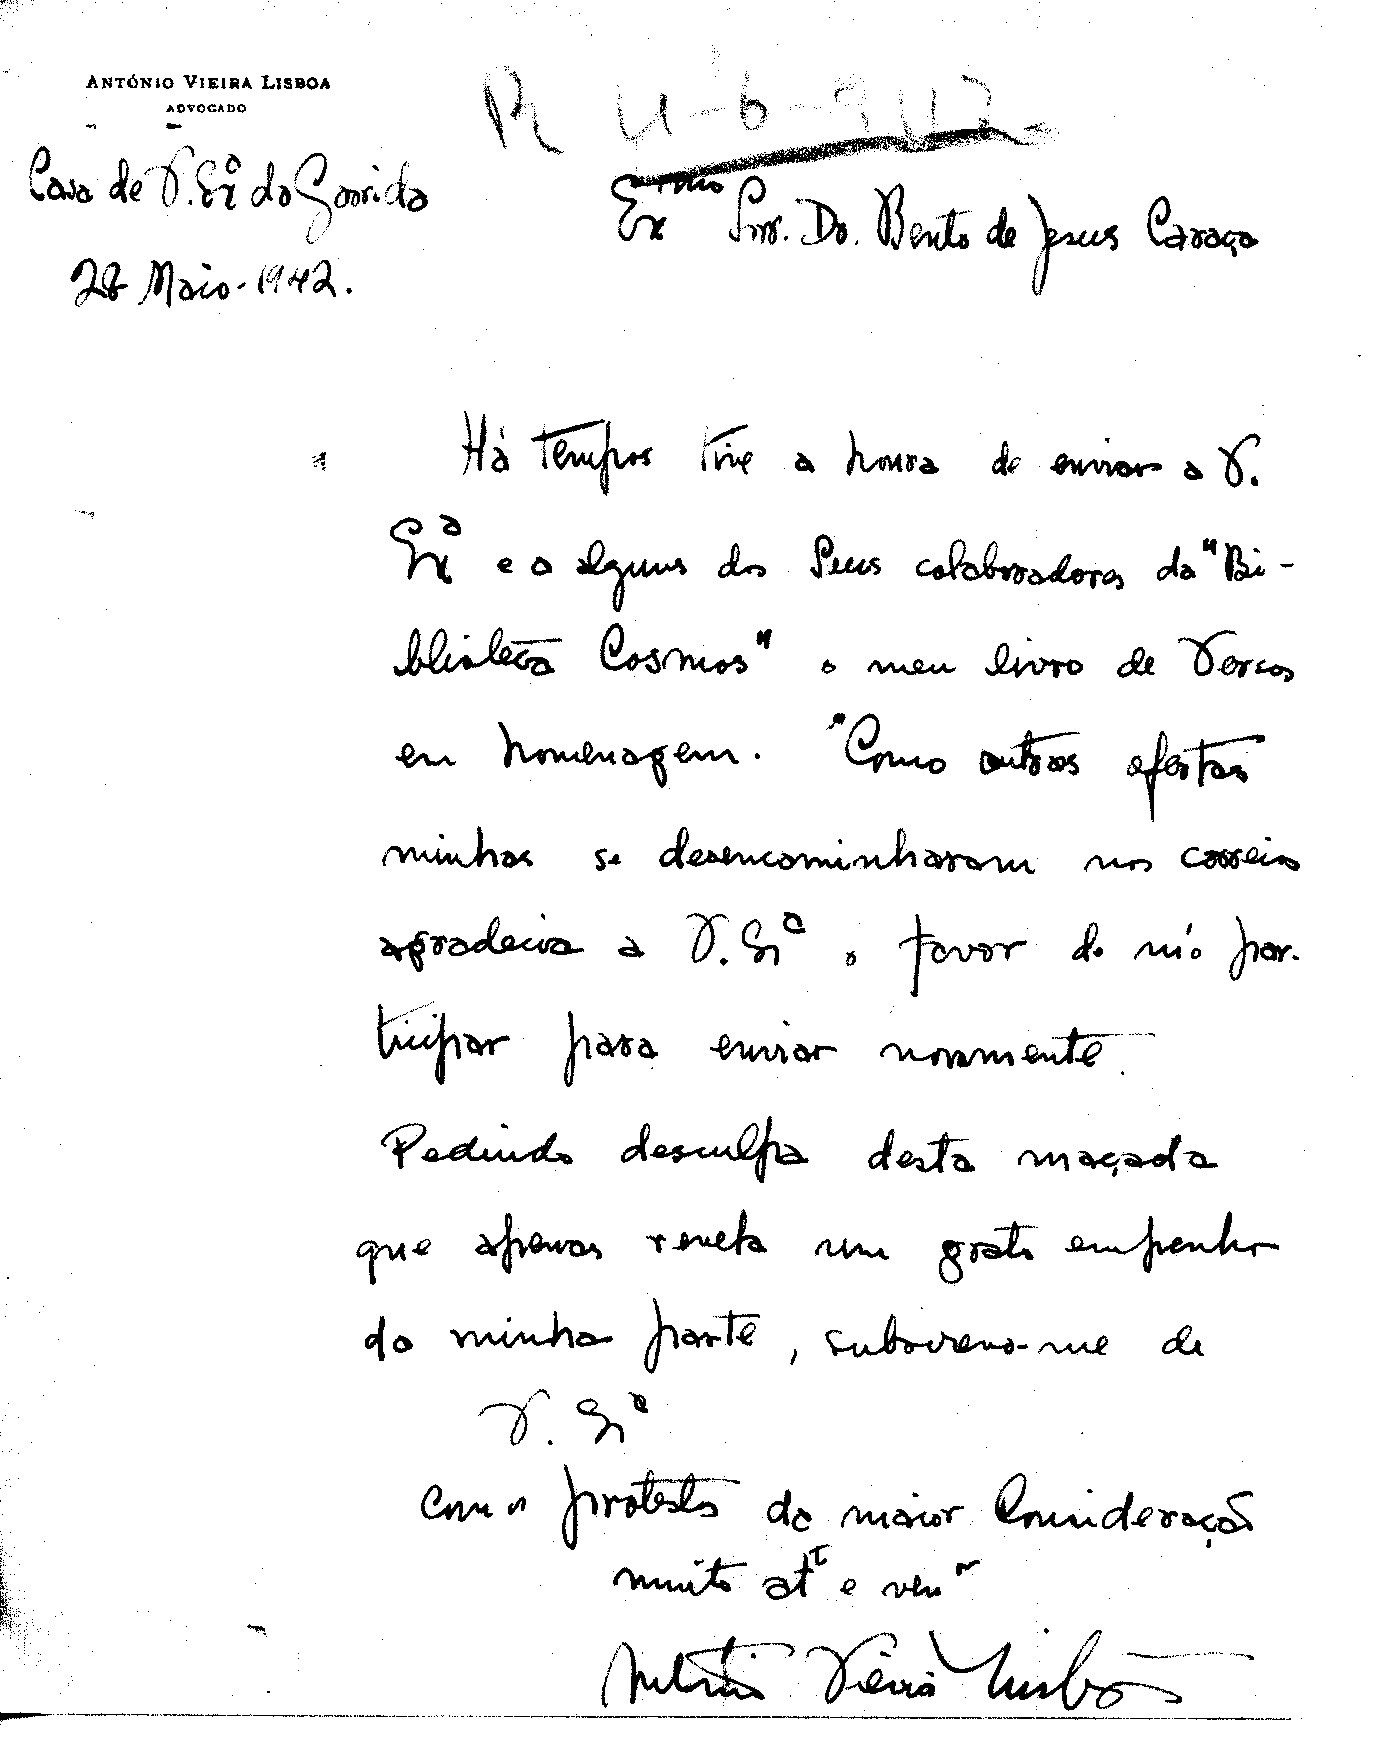 ANTÓNIO VIEIRA LISBOA
ADVOGADO
R 4-6-942
Casa de V. Exª da Garrida
28 Maio-1942.
Exmo Snr. Dr. Bento de Jesus Caraça
Há tempos tive a honra de enviar a V.
Exª e a alguns dos Seus colaboradores da "Bi-
blioteca Cosmos" o meu livro de Versos
em homenagem. Como outras ofertas
minhas se desencaminharam nos correios
agradecia a V. Exª o favor de m'o par-
ticipar para enviar novamente.
Pedindo desculpa desta maçada
que apenas revela um grato empenho
da minha parte, subscrevo-me de
V. Exª
com os protestos da maior Consideração
muito att e venr
António Vieira Lisboa